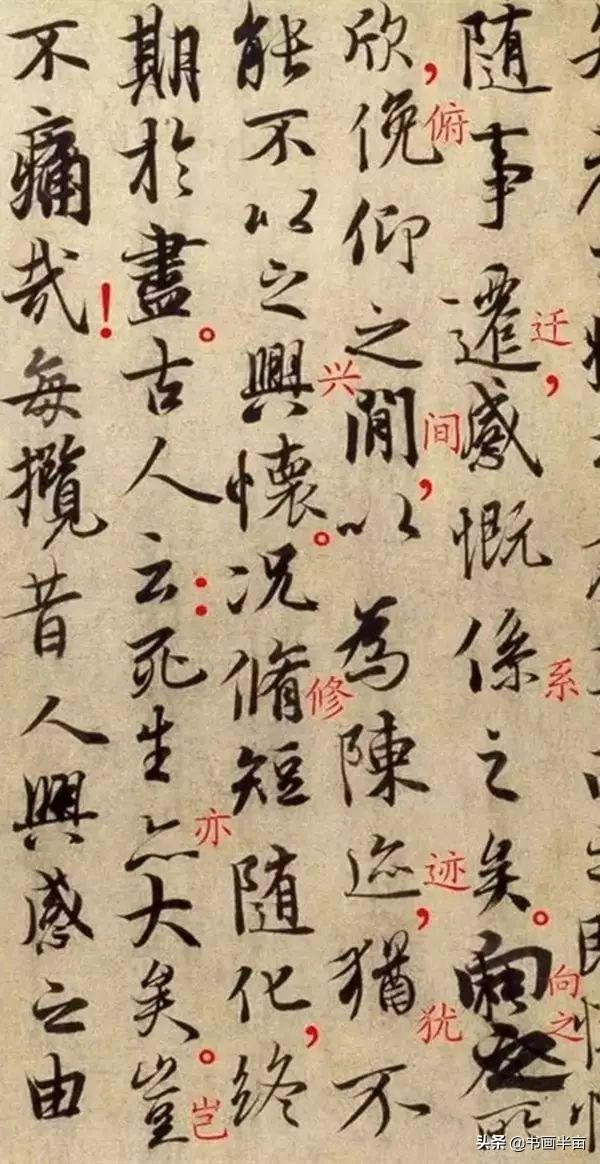 随事遷，感慨係之矣。向之所
迁
系
向之
欣，俛仰之閒，以為陳迹，猶不
俯
间
迹
犹
能不以之興懷。况脩短随化，終
兴
修
期於盡。古人云：死生亦大矣。豈
亦
岂
不痛哉！每攬昔人興感之由
头条 @书画半亩